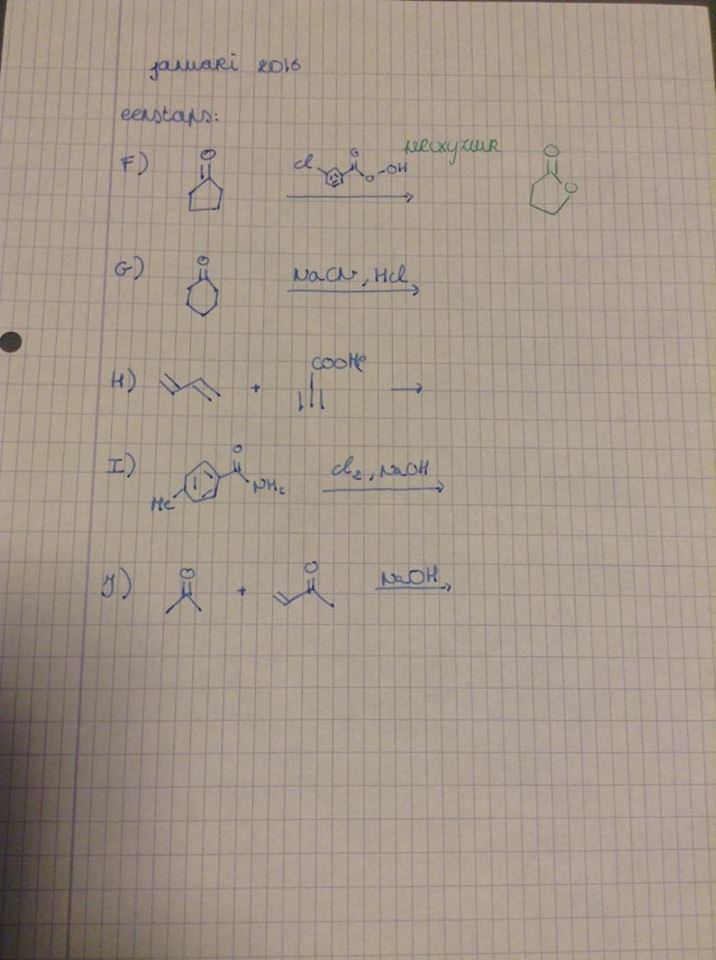 januari 2016
eenstaps:
F) O Cl O O-OH peroxyzuur O O
G) O NaCN, HCl
H) + COOMe
I) Me O NH2 Cl2, NaOH
J) O + O NaOH